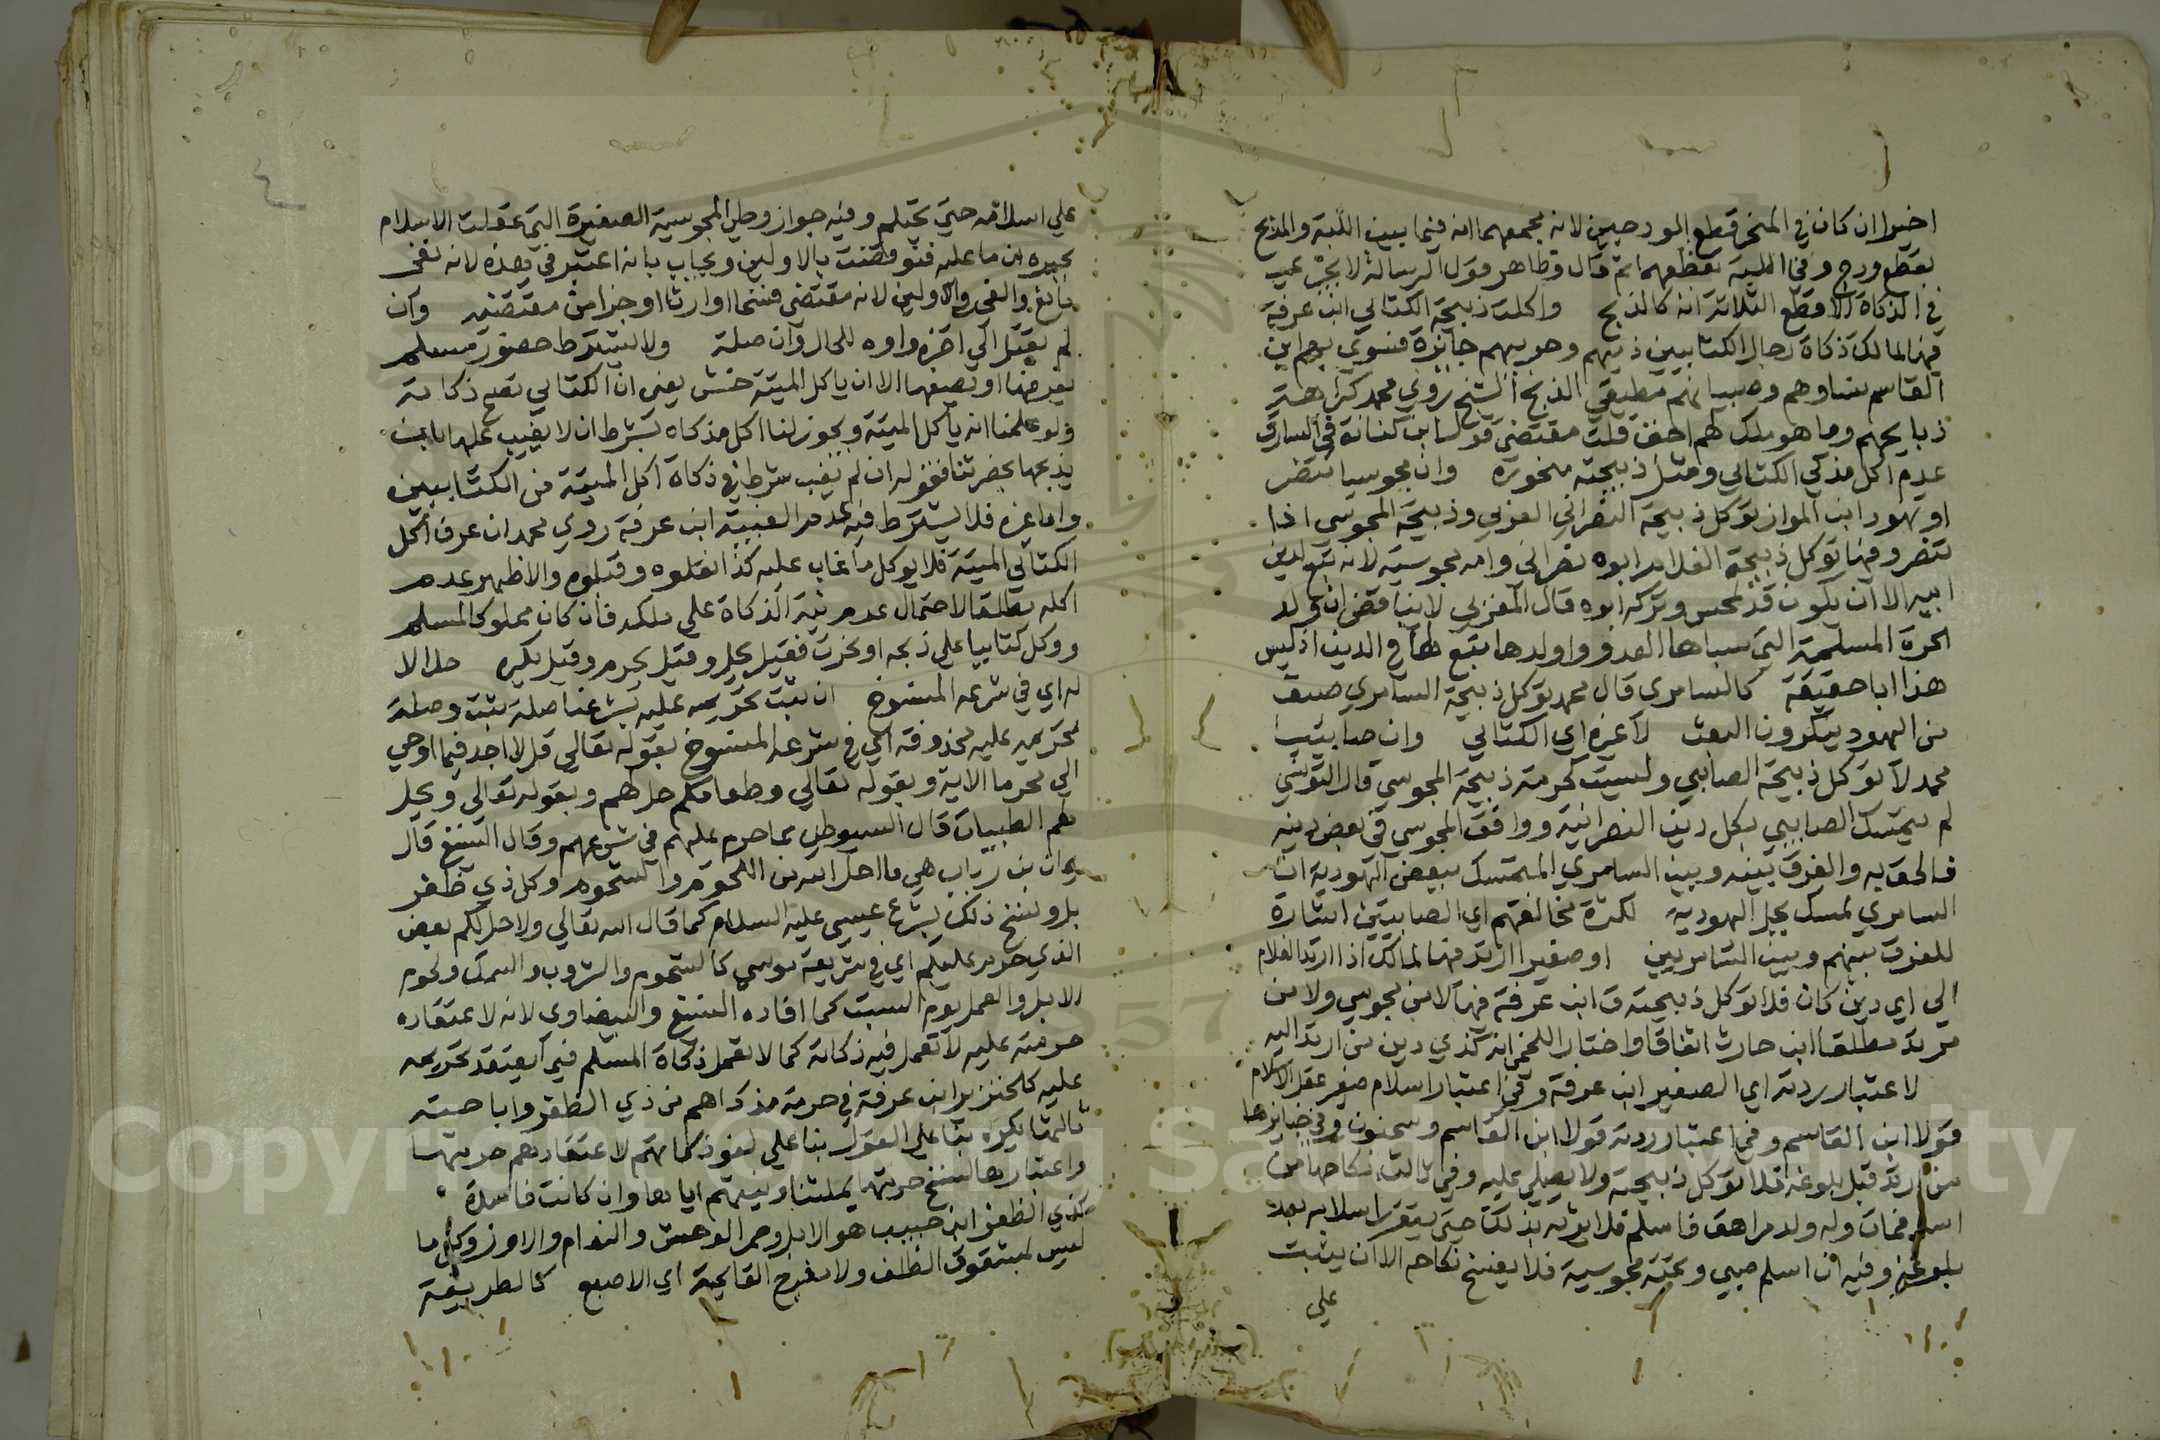 اخيرا ان كان في المنحر قطع الودجين لانه مجمعهما انه فيما بين اللبة والمذبح
بقطع ودج وفي اللبة بقطعهما ثم قال وظاهر قول الرسالة لا يجزئ غيب
في الذكاة الا قطع الثلاثة انه كالذبح واكلت ذبيحة الكتابي ابن عرفة
فيها لمالك ذكاة رجال الكتابيين ذميهم وحربيهم جائزة فتوي بهم ابن
القاسم نساوهم وصبيانهم مطيقي الذبح الشيخ روي محمد كراهة
ذبايحهم وما هو ملك لهم اخف قلت مقتضى قول ابن كنانة في السارق
عدم اكل مذكي الكتابي ومثل ذبيحته منحورة وان مجوسيا تنصر
او تهود ابن المواز توكل ذبيحة النصراني العربي وذبيحة المجوسي اذا
تنصر وفيها توكل ذبيحة الغلام ابوه نصراني وامه مجوسية لانه تبع لدين
ابيه الا ان يكون قد تمجس وتركه ابوه قال المغربي لابن
الحرة المسلمة التي سباها العدو واولدها تبع لها في الدين اذ ليس
هذا ابا حقيقة كالسامري قال محمد توكل ذبيحة السامري صنف
من اليهود ينكرون البعث لا غيره اي الكتابي وان صابئيا
محمد لا توكل ذبيحة الصابئي وليست كحرمة ذبيحة المجوسي قال التونسي
لم يتمسك الصابئي بكل دين النصرانية ووافق المجوسي في بعض دينه
فالحق به والفرق بينه وبين السامري المتمسك ببعض اليهودية ان
السامري تمسك بجل اليهودية لكثرة مخالفتهم اي الصابئين اشارة
للفرق بينهم وبين السامريين او صغيرا ارتد فيها لمالك اذا ارتد الغلام
الي اي دين كان فلا توكل ذبيحته ق ابن عرفة فيها لا من مجوسي ولا من
مرتد مطلقا ابن حارث اتفاقا واختار اللخمي انه كذي دين من ارتد اليه
لاعتبار ردته اي الصغير ابن عرفة وفي اعتبار اسلام صغير عقل الاسلام
قولا ابن القاسم وفي اعتبار ردته قولا ابن القاسم وسحنون وفي جنايزها
من ارتد قبل بلوغه فلا توكل ذبيحته ولا يصلي عليه وفي ثالث نكاحها من
اسلم فمات وله ولد مراهق فاسلم فلا يرثه بذلك حتي يتقرر اسلامه بعد
بلوغه وفيه ان اسلم صبي وتحته مجوسية فلا يفسخ نكاحه الا ان يثبت
علي
علي اسلامه حتي يحتلم وفيه جواز وطئ المجوسية الصغيرة التي عقلت الاسلام
بجبره من ما عليه فنوقضت بالاولين ويجاب بانه اعتبر في هذه لانه نفي
مانع والغي في الاولين لانه مقتضي فسخا او ارثا او جزا من مقتضيه وان
لم يقتل الي اخره واوه للحال وان صلة ولا يشترط حضور مسلم
يعرفها او يصفها الا ان ياكل الميتة حـش يعني ان الكتابي تصح ذكاته
ولو علمنا انه ياكل الميتة ويجوز لنا اكل مذكاه بشرط ان لا يغيب عليها بان
يذبحها بحضرتنا فقوله ان لم يغب شرط في ذكاة اكل الميتة من الكتابيين
واما غيره فلا يشترط فيه عدم الغيبة ابن عرفة روي محمد ان عرف اكل
الكتابي الميتة فلا يوكل ما غاب عليه كذا نقلوه وقبلوه والاظهر عدم
اكله مطلقا لاحتمال عدم نية الذكاة علي ملكه فان كان مملوكا لمسلم
ووكل كتابيا علي ذبحه او نحره فقيل يحل وقيل يحرم وقيل يكره حلالا
له اي في شرعه المنسوخ ان ثبت تحريمه عليه بشرعنا صلة ثبت وصلة
تحريمه عليه محذوفة اي في شرعه المنسوخ بقوله تعالي قل لا اجد فيما اوحي
الي محرما الاية وبقوله تعالي وطعامكم حل لهم وبقوله تعالي ويحل
لهم الطيبات قال السيوطي مما حرم عليهم في شرعهم وقال الشيخ قال
يمان بن رباب هي ما احل الله من اللحوم والشحوم وكل ذي ظفر
بل ونسخ ذلك بشرع عيسي عليه السلام كما قال الله تعالي ولاحل لكم بعض
الذي حرم عليكم اي في شريعة موسي كالشحوم والثروب والسمك ولحوم
الابل والعمل يوم السبت كما افاده الشيخ والبيضاوي لانه لاعتقاده
حرمته عليه لا تعمل فيه ذكاته كما لا تعمل ذكاة المسلم فيما يعتقد تحريمه
عليه كالخنزير ابن عرفة في حرمة مذكاهم من ذي الظفر واباحته
ثالثها يكره بنا علي القول بنا علي لغو ذكاتهم لاعتقادهم حرمتها
واعتبارها لنسخ حرمتها بملتنا ونيتهم اياها وان كانت فاسدة
كذي الظفر ابن حبيب هو الابل وحمر الوحش والنعام والاوز وكل ما
ليس بمشقوق الظلف ولا منفرج القايمة اي الاصبع كالطريفة